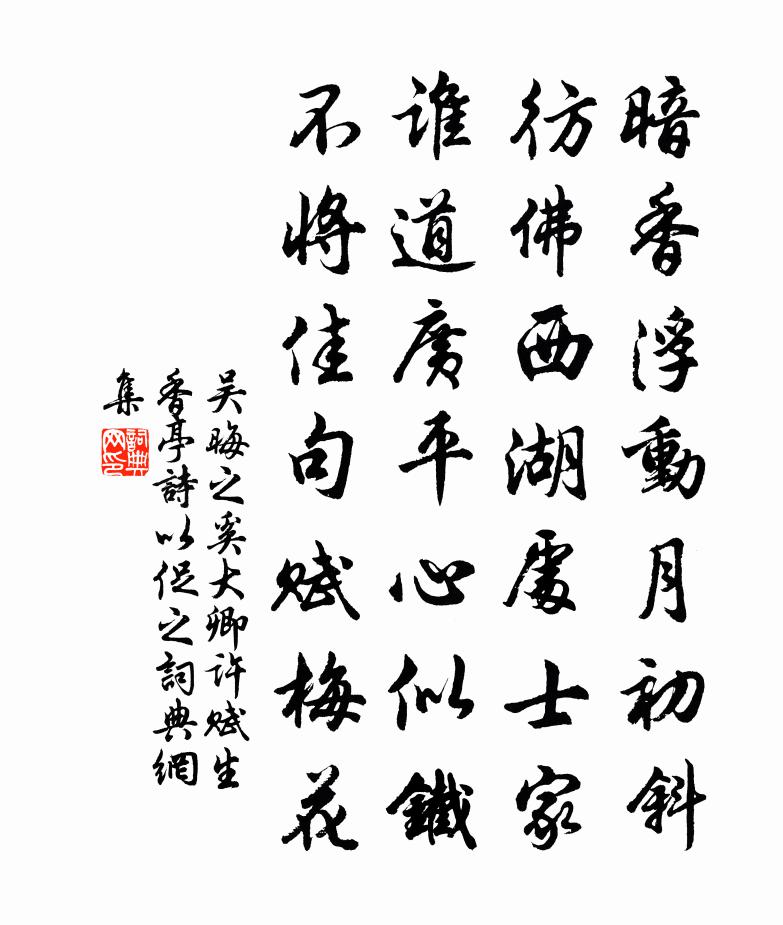 暗香浮動月初斜
彷佛西湖處士家
誰道廣平心似鐵
不將佳句賦梅花
吴晦之奚大卿許賦生
香亭詩以促之詞典網
集
詞典網印